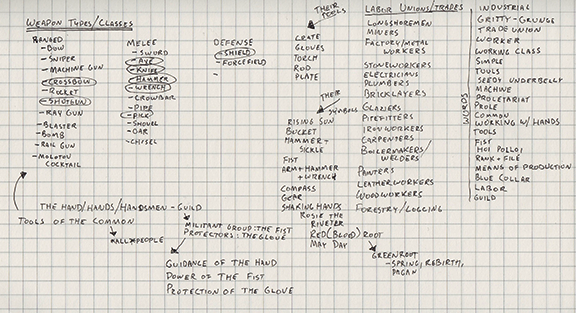 WEAPON TYPES/CLASSES
RANGED
-BOW
-SNIPER
-MACHINE GUN
-CROSSBOW
-ROCKET
-SHOTGUN
-RAY GUN
-BLASTER
-BOMB
-RAIL GUN
-MOLOTOV
COCKTAIL
MELEE
-SWORD
-AXE
-KNIFE
-HAMMER
-WRENCH
-CROWBAR
-PIPE
-PICK
-SHOVEL
-OAR
-CHISEL
DEFENSE
-SHIELD
-FORCEFIELD
-
THEIR
TOOLS
CRATE
GLOVES
TORCH
ROD
PLATE
THEIR
SYMBOLS
RISING SUN
BUCKET
HAMMER +
SICKLE
FIST
ARM + HAMMER
+ WRENCH
COMPASS
GEAR
SHAKING HANDS
ROSIE THE
RIVETER
RED (BLOOD) ROOT
MAY DAY
LABOR UNIONS/TRADES
LONGSHOREMEN
MINERS
FACTORY/METAL
WORKERS
STONEWORKERS
ELECTRICIANS
PLUMBERS
BRICKLAYERS
GLAZIERS
PIPEFITTERS
IRONWORKERS
CARPENTERS
BOILERMAKERS/
WELDERS
PAINTERS
LEATHERWORKERS
WOODWORKERS
FORESTRY/LOGGING
GREENROOT
-SPRING, REBIRTH,
PAGAN
WORDS
INDUSTRIAL
GRITTY-GRUNGE
TRADE UNION
WORKER
WORKING CLASS
SIMPLE
TOOLS
SEEDY UNDERBELLY
MACHINE
PROLETARIAT
PROLE
COMMON
WORKING W/ HANDS
TOOLS
FIST
HOI POLLOI
RANK + FILE
MEANS OF PRODUCTION
BLUE COLLAR
LABOR
GUILD
THE HAND/HANDS/HANDSMEN - GUILD
TOOLS OF THE COMMON
*ALL*PEOPLE
MILITANT GROUP: THE FIST
PROTECTORS: THE GLOVE
GUIDANCE OF THE HAND
POWER OF THE FIST
PROTECTION OF THE GLOVE